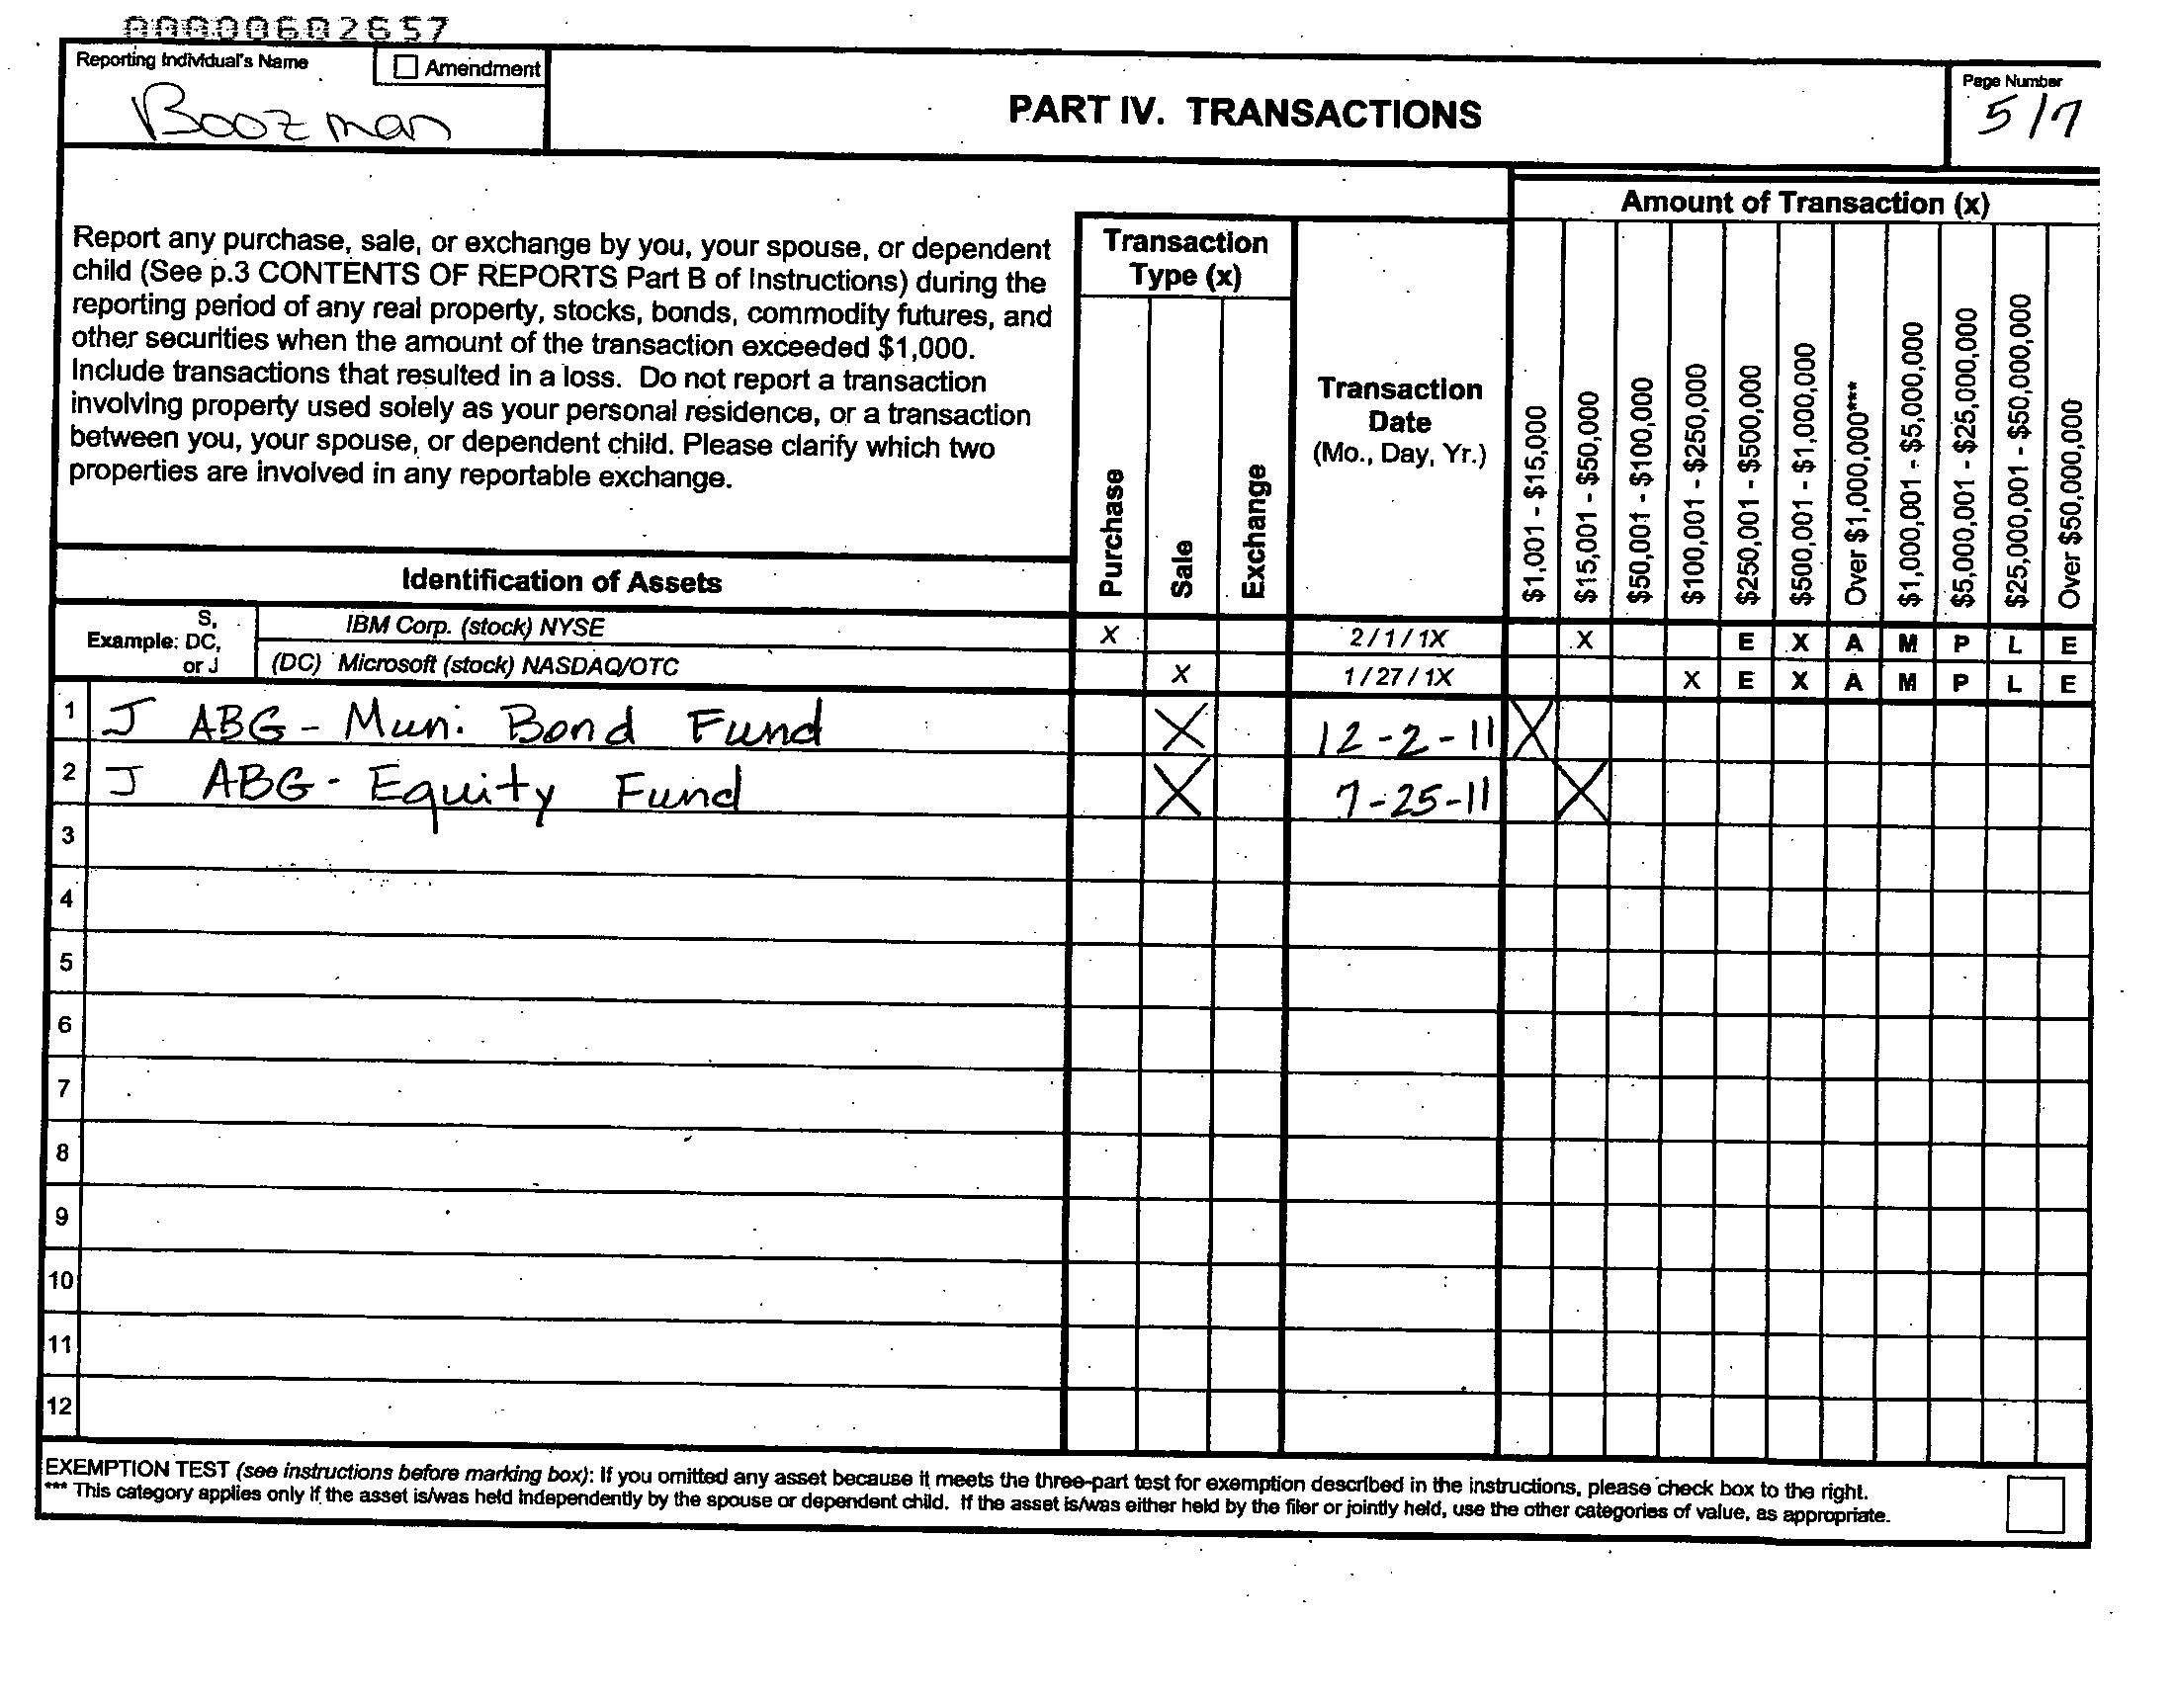 00000602657
Reporting Individual's Name
Amendment
Boozman
PART IV. TRANSACTIONS
Page Number
5/7
Report any purchase, sale, or exchange by you, your spouse, or dependent
child (See p.3 CONTENTS OF REPORTS Part B of Instructions) during the
reporting period of any real property, stocks, bonds, commodity futures, and
other securities when the amount of the transaction exceeded $1,000.
Include transactions that resulted in a loss. Do not report a transaction
involving property used solely as your personal residence, or a transaction
between you, your spouse, or dependent child. Please clarify which two
properties are involved in any reportable exchange.
Identification of Assets
Transaction
Type (x)
Purchase
Sale
Exchange
Transaction
Date
(Mo., Day, Yr.)
Amount of Transaction (x)
$1,001 - $15,000
$15,001 - $50,000
$50,001 - $100,000
$100,001 - $250,000
$250,001 - $500,000
$500,001 - $1,000,000
Over $1,000,000***
$1,000,001 - $5,000,000
$5,000,001 - $25,000,000
$25,000,001 - $50,000,000
Over $50,000,000
Example: S, DC, or J
IBM Corp. (stock) NYSE X 2/1/1X X E X A M P L E
(DC) Microsoft (stock) NASDAQ/OTC X 1/27/1X X E X A M P L E
1 J ABG - Muni Bond Fund X 12-2-11 X
2 J ABG - Equity Fund X 7-25-11 X
3
4
5
6
7
8
9
10
11
12
EXEMPTION TEST (see instructions before marking box): If you omitted any asset because it meets the three-part test for exemption described in the instructions, please check box to the right.
*** This category applies only if the asset is/was held independently by the spouse or dependent child. If the asset is/was either held by the filer or jointly held, use the other categories of value, as appropriate.